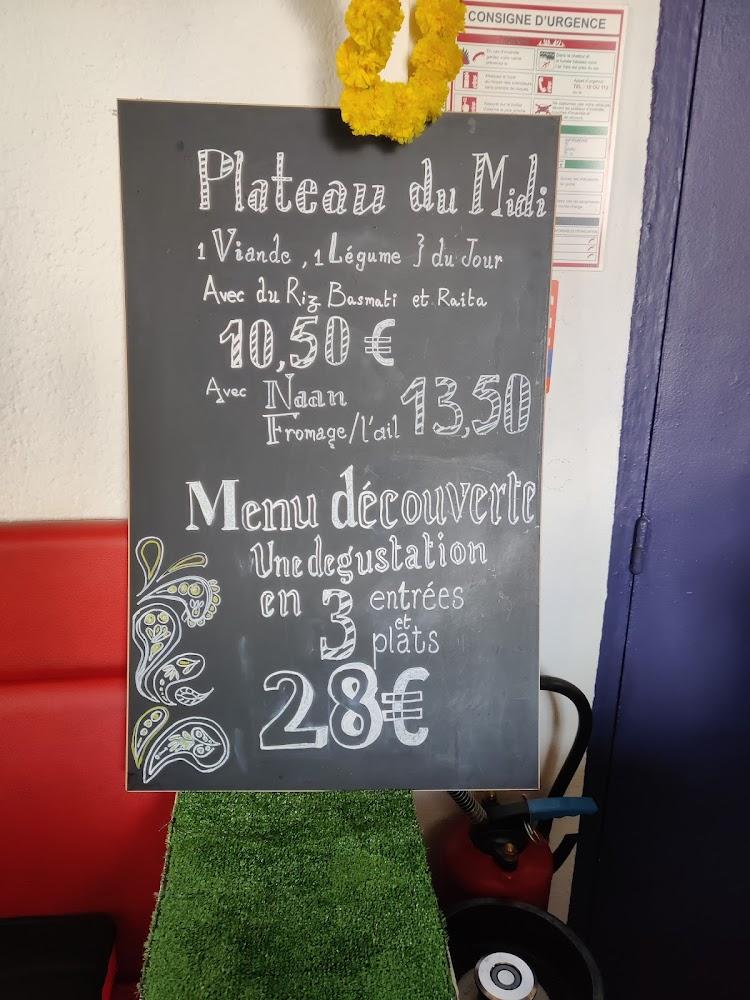 CONSIGNE D'URGENCE
Plateau du Midi
1 Viande, 1 Légume } du Jour
Avec du Riz Basmati et Raita
10,50 €
Avec Naan 13,50
Fromage/l'ail
Menu découverte
Une degustation
en 3 entrées
et
plats
28€